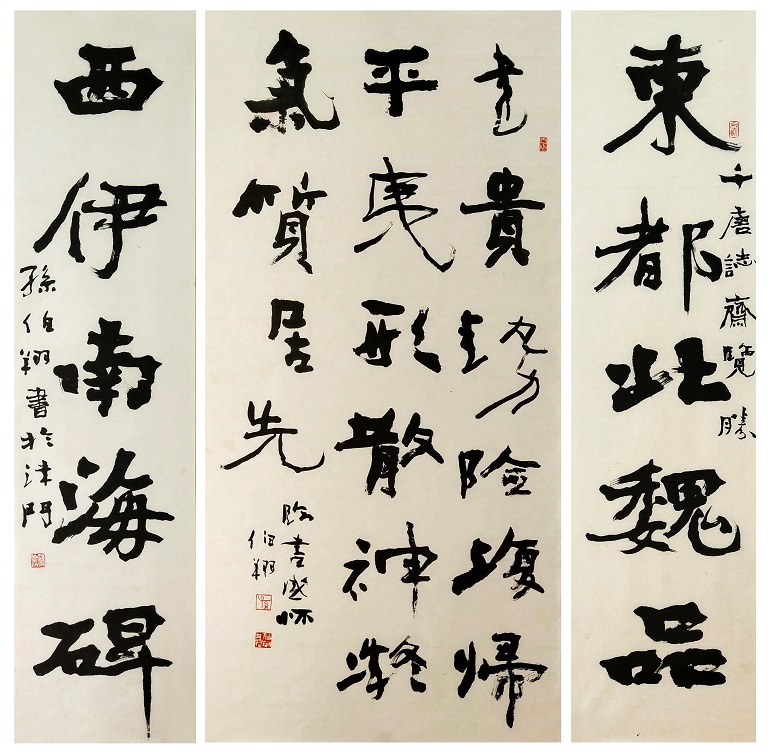 東都北魏品
千唐誌齋覽勝
書貴勢險復歸
平夷形散神凝
氣質居先
臨書感怀
伯翔
西伊南海碑
孫伯翔書於津門